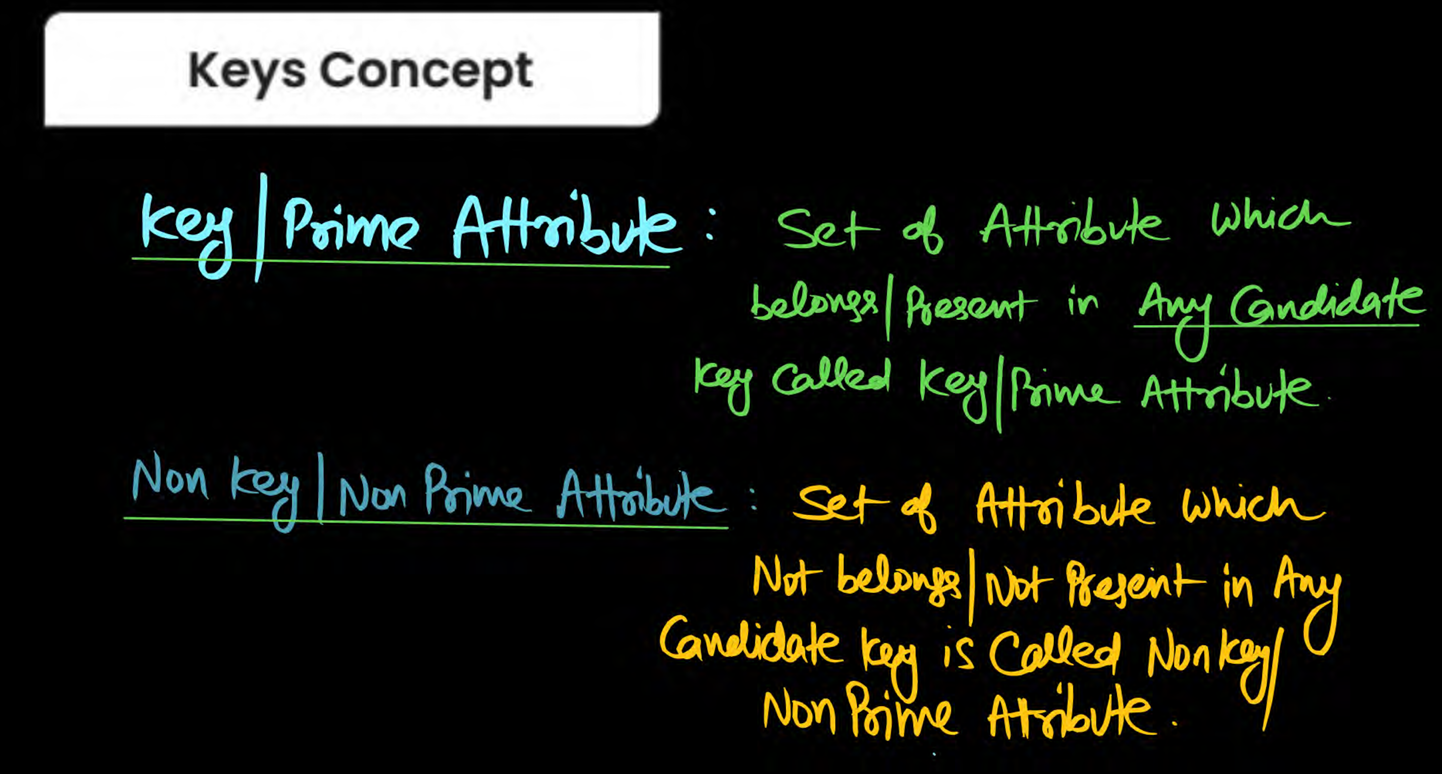 Keys Concept
Key | Prime Attribute : Set of Attribute which
belongs | Present in Any Candidate
Key Called Key | Prime Attribute.
Non Key | Non Prime Attribute : Set of Attribute which
Not belongs | Not Present in Any
Candidate Key is Called Non Key /
Non Prime Attribute.